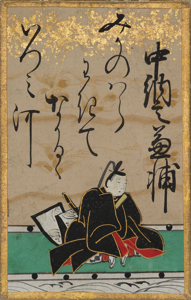 中納言兼輔
みかのはら
わきて
なかるゝ
いつミ河